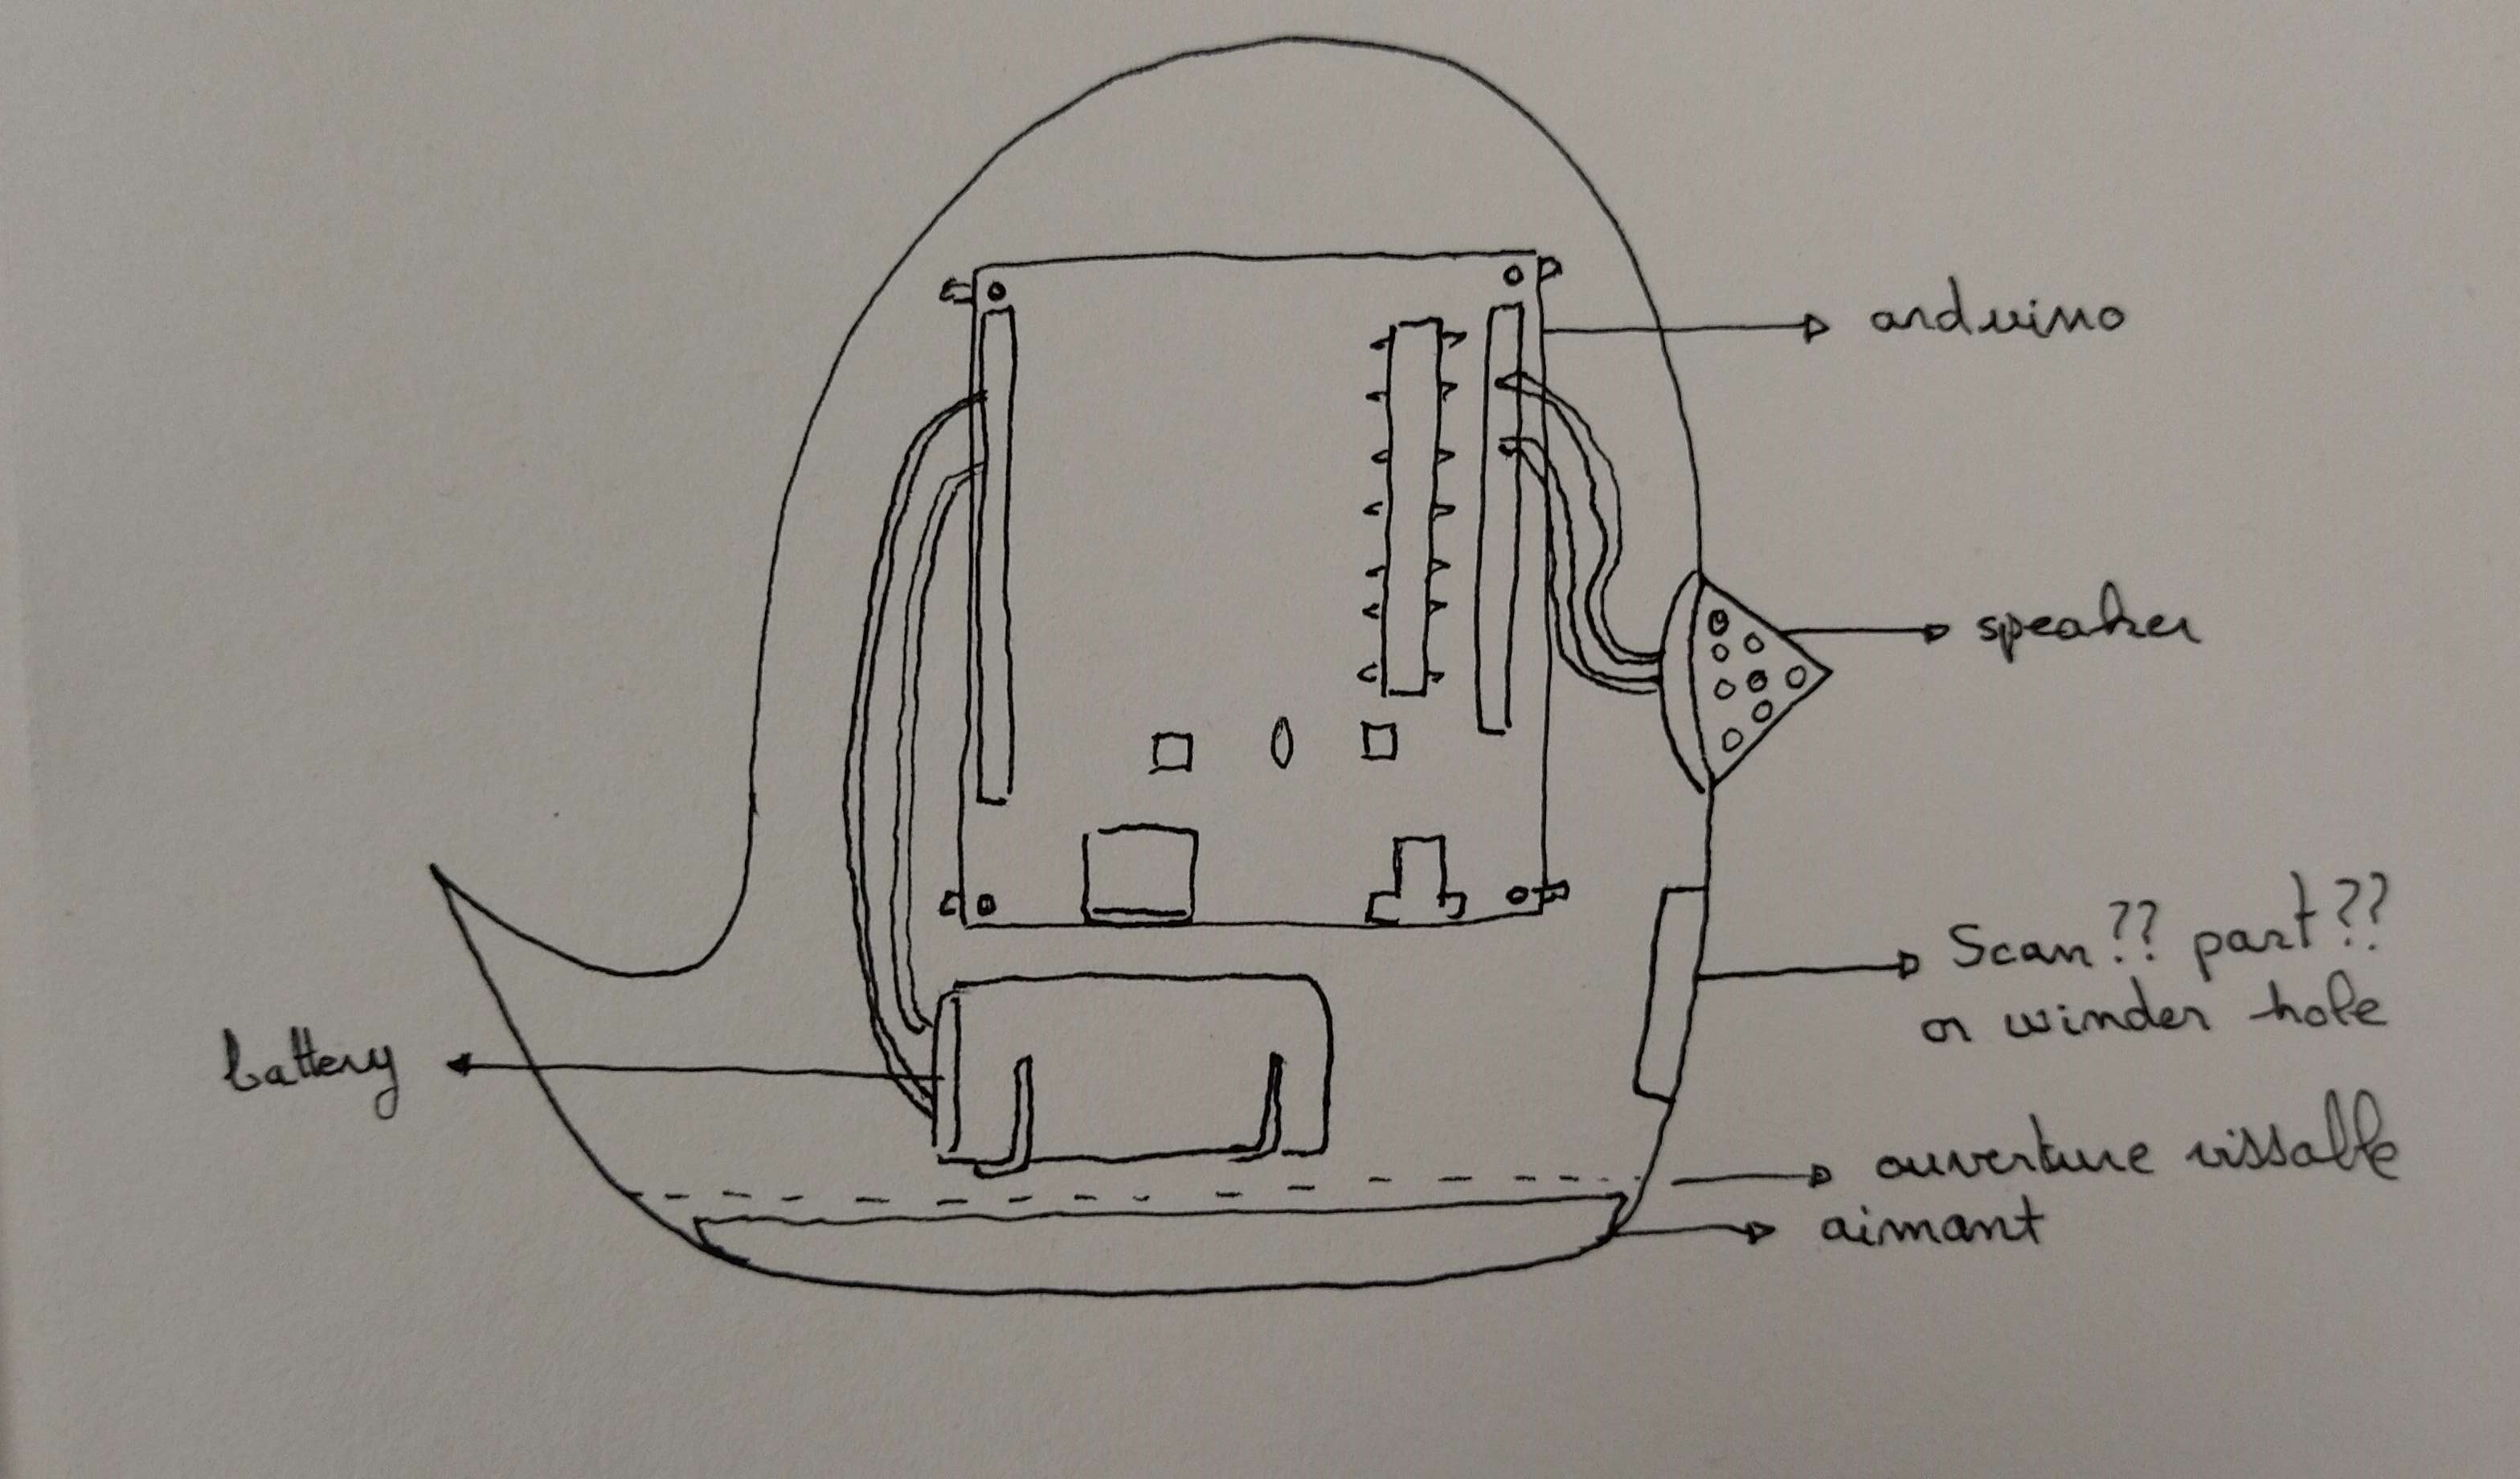 arduino
speaker
Scan?? part??
or winder hole
battery
ouverture vissable
aimant